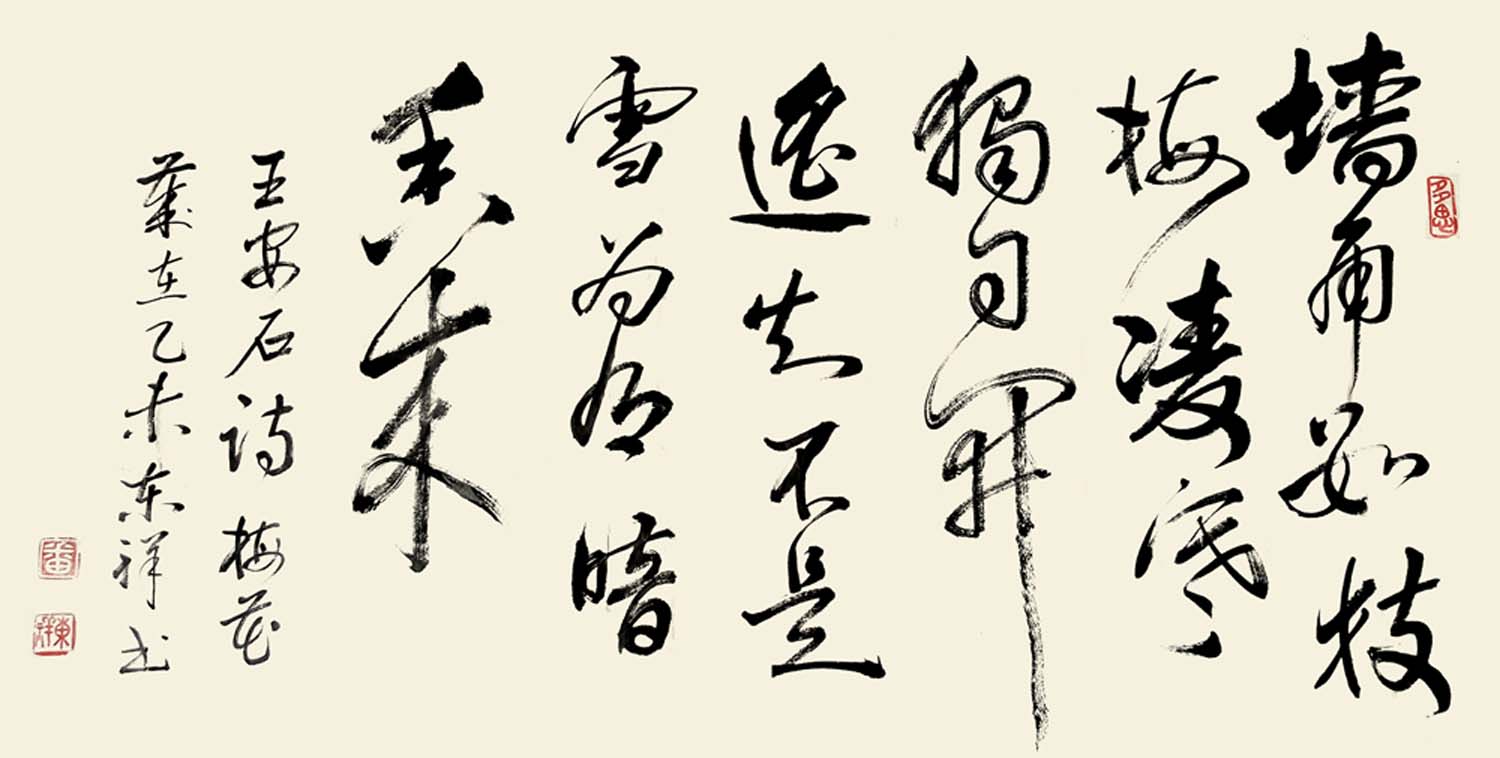 多思
墙角数枝
梅凌寒
獨自開
遥知不是
雪为有暗
香来
王安石诗梅花
歲在乙未东祥书